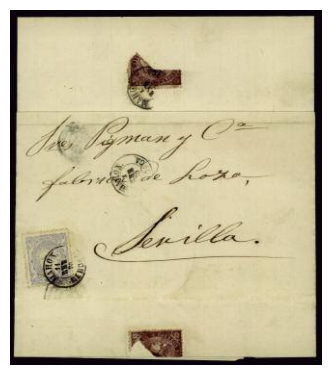 Sres Pigman y Cª
fabrica de Loza,
Sevilla.
MAHON